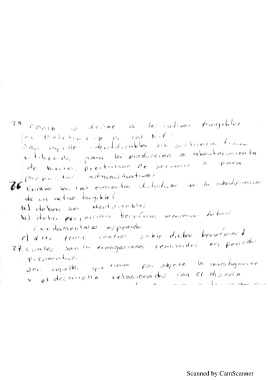 como se define a los activos intangibles
son aquellos identificables sin sustancia física
utilizados para la produccion o abastecimiento
de bienes, prestacion de servicios o para
propositos administrativos
26. Cuales son los elementos distintivos en la identificacion
de un activo tangible?
a) deben ser identificables
b) debe proporcionar beneficios economicos futuros
fundamentalmente esperados
c) debe tener control sobre dichos beneficios
27. Cuales son las erogaciones realizadas en periodo
preoperativo
son aquellas que tienen por objeto la investigacion
y el desarrollo relacionados con el diseño
Scanned by CamScanner